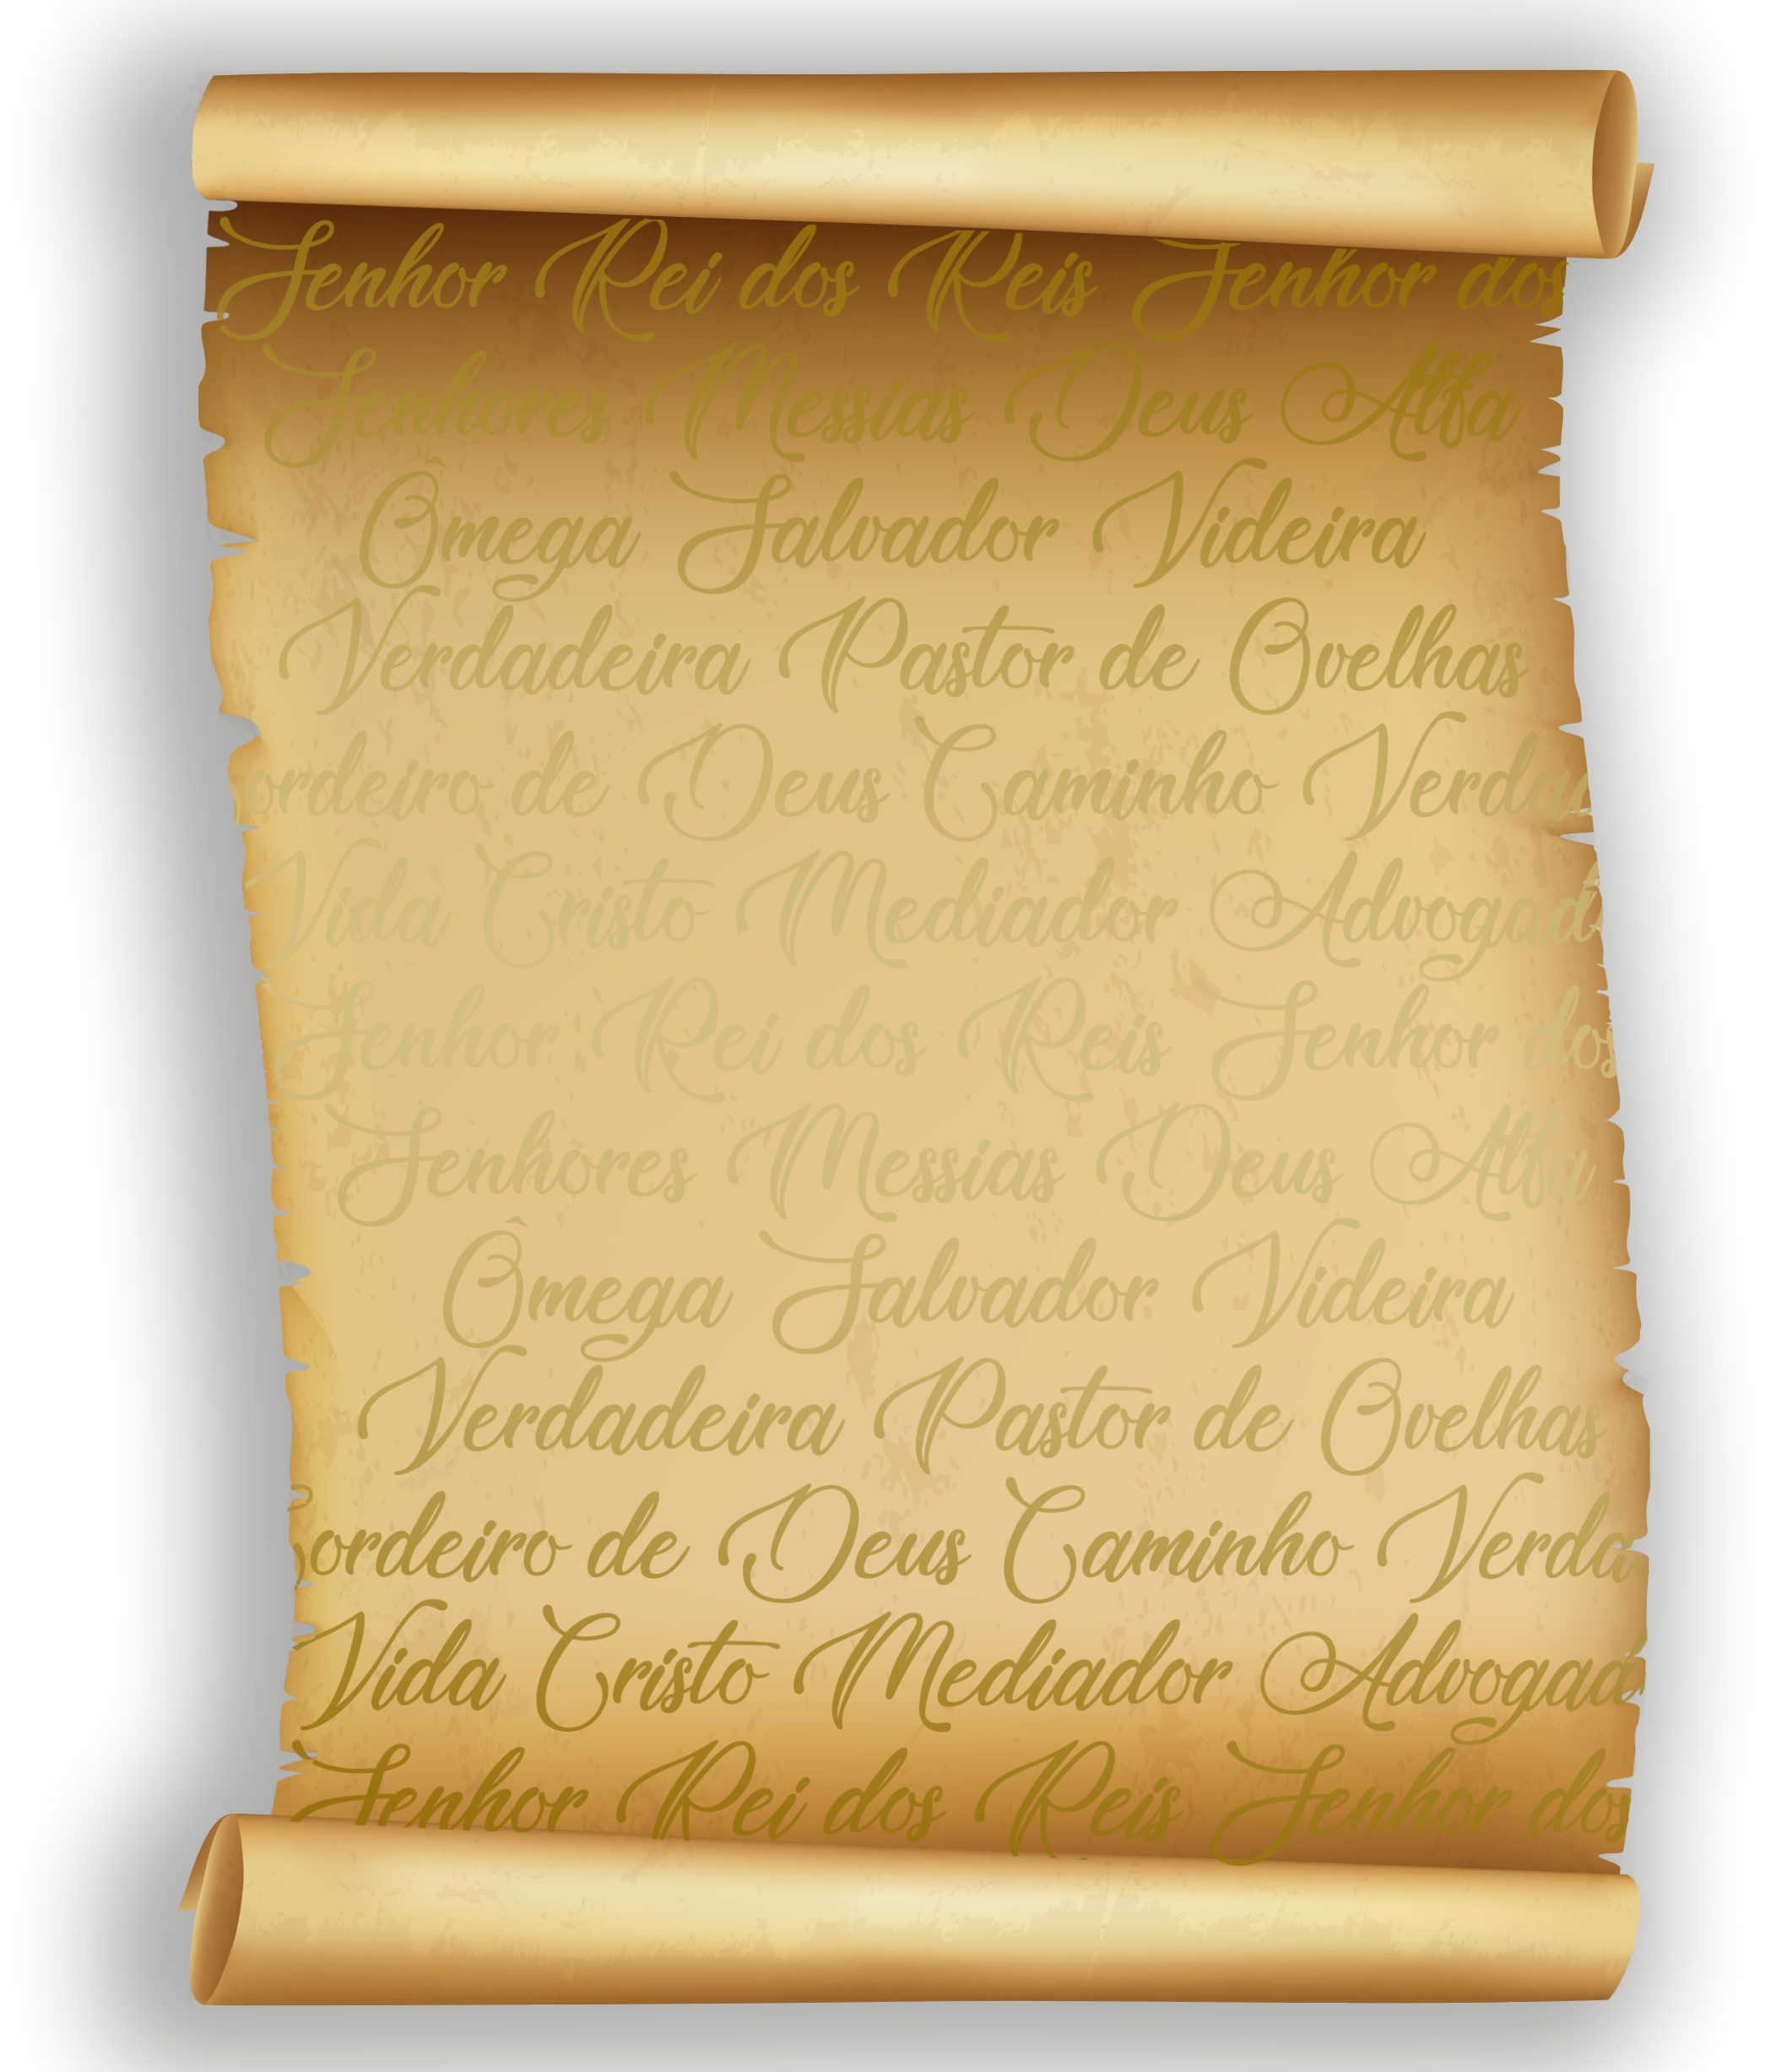 Senhor Rei dos Reis Senhor dos
Senhores Messias Deus Alfa
Ômega Salvador Videira
Verdadeira Pastor de Ovelhas
ordeiro de Deus Caminho Verda
Vida Cristo Mediador Advogad
Senhor Rei dos Reis Senhor dos
Senhores Messias Deus Alfa
Ômega Salvador Videira
Verdadeira Pastor de Ovelhas
Cordeiro de Deus Caminho Verda
Vida Cristo Mediador Advogad
Senhor Rei dos Reis Senhor dos